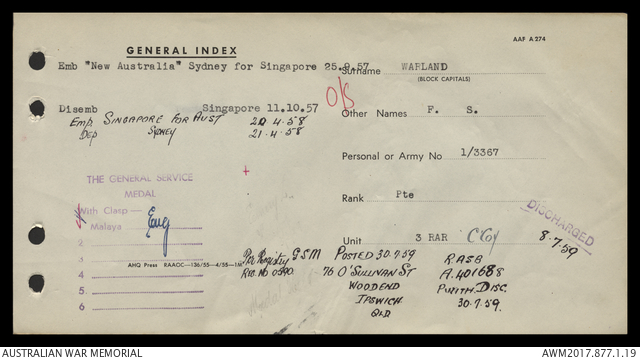 AAF A 274
GENERAL INDEX
Emb "New Australia" Sydney for Singapore 25.9.57
Surname WARLAND
(BLOCK CAPITALS)
O/S
Disemb Singapore 11.10.57
Emp SINGAPORE FOR AUST 20 4.58
Dep SYDNEY 21.4.58
Other Names F. S.
Personal or Army No 1/3367
THE GENERAL SERVICE
MEDAL
With Clasp—
1 Malaya
2
3
4
5
6
Rank Pte
DISCHARGED
8.7.59
Unit 3 RAR C Coy
AHQ Press RAAOC—136/55—4/55—
Per Registry GSM POSTED 30.7.59 RASB
REG. No 76 O'SULLIVAN ST A.401688
WOODEND PURITH. DISC.
IPSWICH 30.7.59.
QLD
AUSTRALIAN WAR MEMORIAL
AWM2017.877.1.19